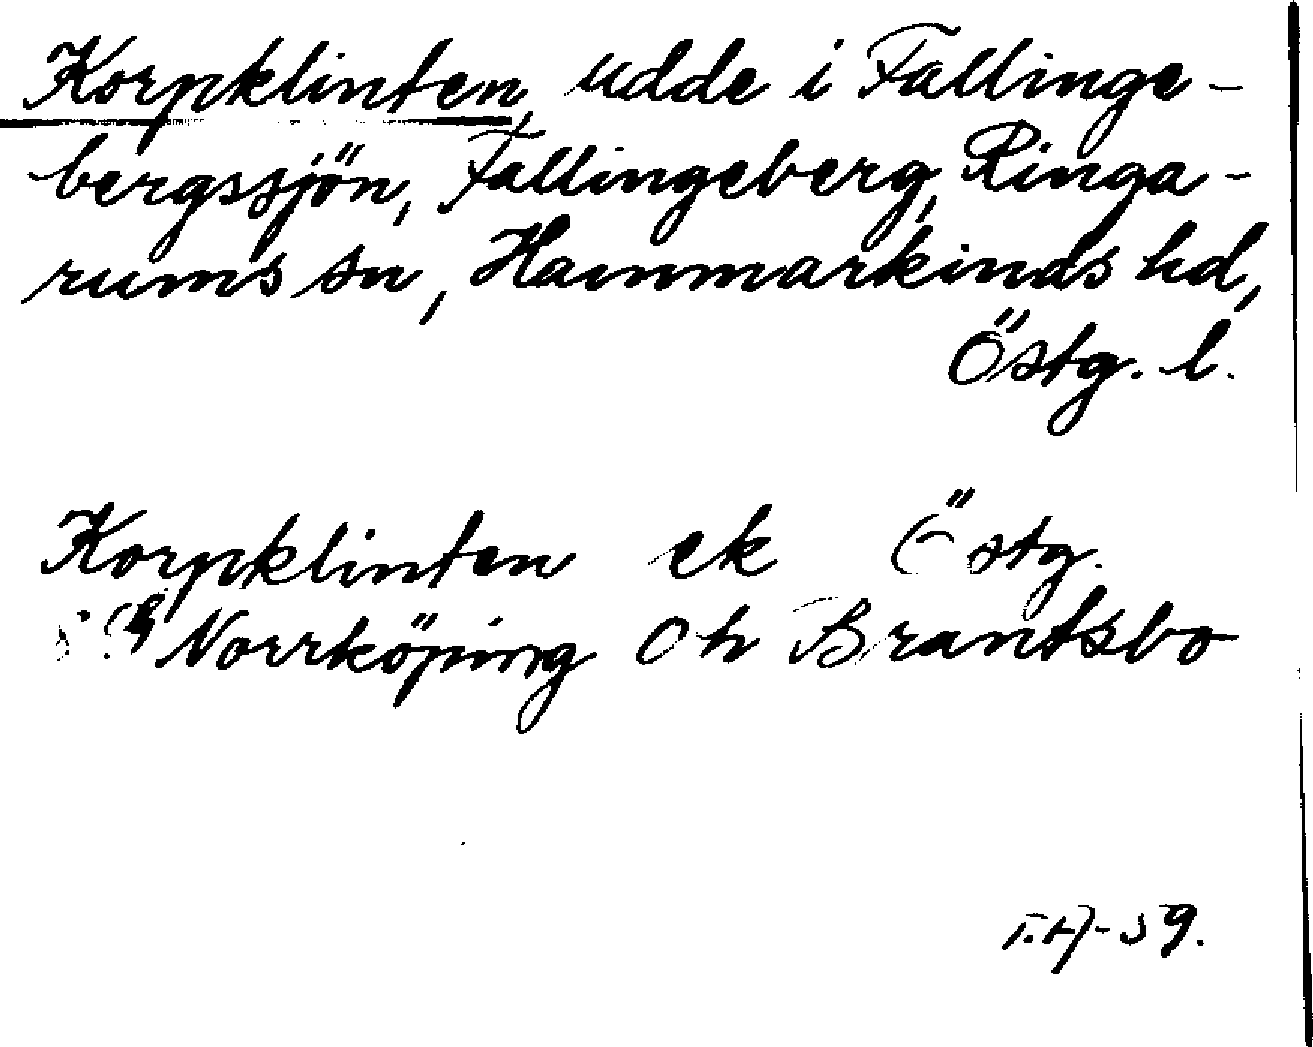 Korpklinten, udde i Fallinge-
bergssjön, Fallingeberg, Ringa-
rums sn, Hammarkinds hd,
Östg. l.
Korpklinten ek Östg.
Norrköping Oh Brantsbo
T.H-59.